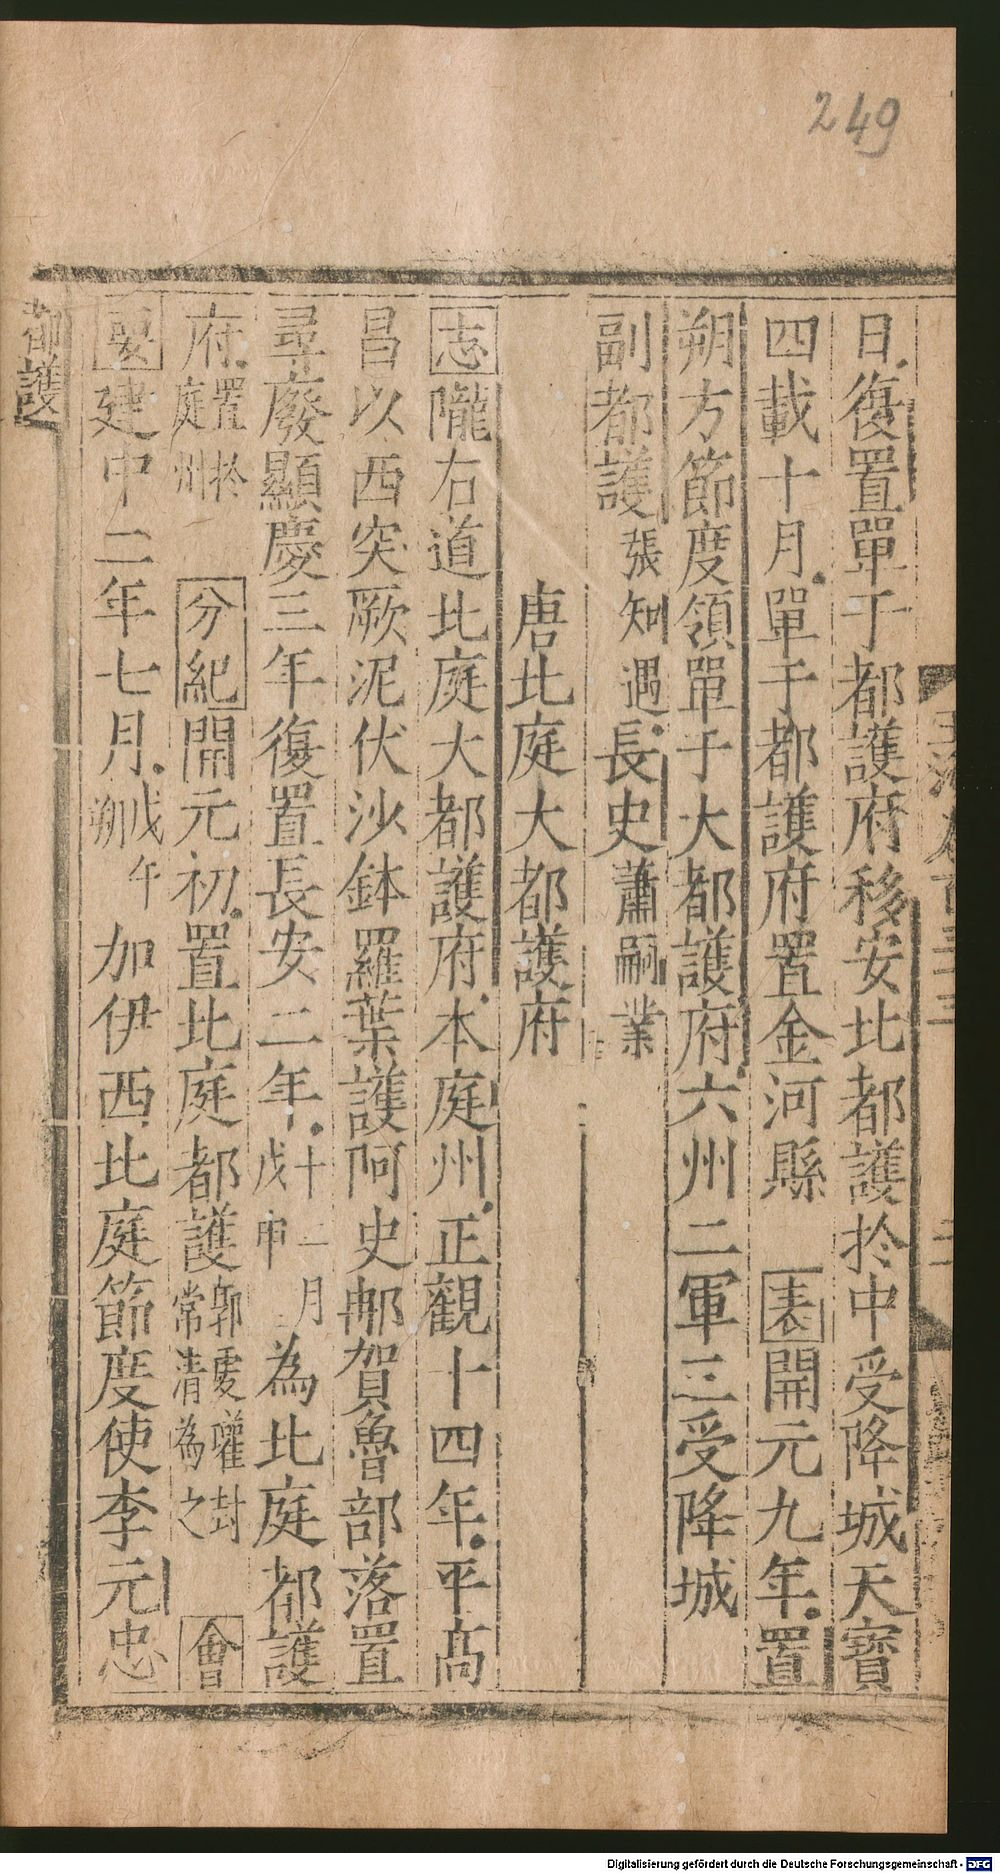 249
日復置單于都護府移安北都護扵中受降城天寶
四載十月單于都護府置金河縣 表開元九年置
朔方節度領單于大都護府六州二軍三受降城
副都護張知遇長史蕭嗣業
唐北庭大都護府
志隴右道北庭大都護府本庭州正觀十四年平高
昌以西突厥泥伏沙鉢羅葉護阿史那賀魯部落置
尋廢顯慶三年復置長安二年十二月戊申為北庭都護
府置扵庭州 分紀開元初置北庭都護郭虔瓘封常清為之 會
要建中二年七月戊午朔加伊西北庭節度使李元忠
都護
Digitalisierung gefördert durch die Deutsche Forschungsgemeinschaft - DFG